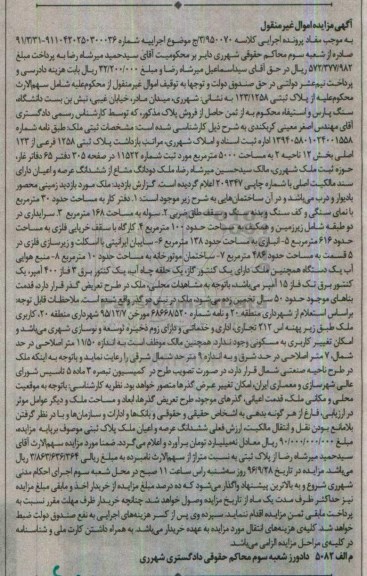 آگهی مزایده اموال غیر منقول
به موجب مفاد پرونده اجرایی کلاسه ۳/۹۵۰۰۷۰/ج موضوع اجراییه شماره
صادره از شعبه سوم محاکم حقوقی شهرری دایر بر محکومیت آقای سیدحمید میرشاه رضا به پرداخت مبلغ
۵۷۲/۳۷۷/۹۸۲ ریال در حق آقای سیداسماعیل میرشاه رضا و مبلغ ۳۲/۲۰۰/۰۰۰ ریال بابت هزینه دادرسی و
پرداخت نیم‌عشر دولتی در حق صندوق دولت و توجها به توقیف اموال غیرمنقول از محکوم‌علیه شامل سهم‌الارث
محکوم‌علیه از پلاک ثبتی ۱۲۳/۱۲۵۸ به نشانی: شهرری، میدان صادر، خیابان غیبی، نبش بن بست دانشگاه
سنگ پارس و استیفاء محکوم به از ثمن حاصل از فروش پلاک مذکور، که توسط کارشناس رسمی دادگستری
آقای مهندس اصغر معینی کریکندی به شرح ذیل کارشناسی شده است: مشخصات ثبتی ملک: طبق نامه شماره
۱۳۹۴۰۵۸۰۱۰۲۴۰۰۱۵۵۸ اداره ثبت اسناد و املاک شهرری، مراتب بازداشت پلاک ثبتی ۱۲۵۸ فرعی از ۱۲۳
اصلی بخش ۱۲ ناحیه ۲ به مساحت ۵۰۰۰ مترمربع مورد ثبت شماره ۱۱۵۲۲ در صفحه ۳۰۵ دفتر ۶۵ دفاتر غار،
حوزه ثبت ملک شهرری، مالک سیدحسین میرشاه رضا، ملک دودانگ مشاع از ششدانگ عرصه و اعیان دارای
سند مالکیت اصلی با شماره چاپی ۲۰۹۳۴۷ اعلام گردیده است. گزارش بازدید: ملک مورد بازدید زمینی محصور
با دیوار و درب می‌باشد و در آن ساختمان‌هایی به شرح زیر موجود است: ۱. دفتر کار به مساحت حدود ۳۰ مترمربع
با نمای سنگی و کف سنگ و بدنه سنگ و سقف طاق ضربی ۲. سوله به مساحت ۱۶۸ مترمربع ۳. سرایداری در
دو طبقه شامل زیرزمین و همکف به مساحت حدود ۱۰۰ مترمربع ۴. کارگاه با سقف خرپایی فلزی به مساحت
حدود ۶۱۶ مترمربع ۵- انباری به مساحت حدود ۱۳۸ مترمربع ۶- سایبان ایرانیتی با اسکلت و زیرسازی فلزی در
۵ قسمت به مساحت حدود ۲۸۶ مترمربع ۷- ساختمان موتورخانه به مساحت حدود ۱۰ مترمربع ۸- منبع هوایی
آب یک دستگاه همچنین فلک دارای یک کنتور گاز، یک حلقه چاه آب، یک کنتور برق ۳ فاز ۴۰۰ آمپر، یک
کنتور برق تک فاز ۱۵ آمپر می‌باشد. باتوجه به مشاهدات محلی، ملک در طرح تعریض گذر قرار دارد، قدمت
بناهای موجود حدود ۵۰ سال تخمین زده می‌شود. ملک در نبش دو گذر واقع شده است. ملاحظات قابل توجه:
براساس استعلام از شهرداری منطقه ۲۰ و نامه شماره ۶۸۶۶۸/۵۲۰ مورخ ۹۵/۱۲/۷ شهرداری منطقه ۲۰، کاربری
ملک طبق زیر پهنه اس ۲۱۲ تجاری، اداری و خدماتی و دارای زوم ذخیره توسعه و نوسازی شهری می‌باشد و
امکان تغییر کاربری به مسکونی وجود ندارد. همچنین مالک موظف است به اندازه ۱۱/۵۰ متر اصلاحی در حد
شمال، ۷ متر اصلاحی در حد شرق و به اندازه ۹ متر حد شمال شرقی را رعایت نماید و باتوجه به اینکه ملک
در طرح ناحیه صنعتی شمال قرار دارد، در صورت تصویب طرح در کمیسیون تبصره ۳ ماده ۵ تاسیس شورای
عالی شهرسازی و معماری ایران، امکان تغییر عرض گذرها متصور خواهد بود. نظریه کارشناسی: باتوجه به موقعیت
محلی و مکانی ملک، قدمت اعیانی، گذرهای موجود، طرح تعریض گذرها، ابعاد و مساحت ملک و دیگر عوامل موثر
در ارزیابی، فارغ از هر گونه بدهی به اشخاص حقیقی و حقوقی و بانک‌ها و ادارات و سازمان‌ها و با در نظر گرفتن
بلامانع بودن نقل و انتقال مالکیت، ارزش فعلی ششدانگ عرصه و اعیان ملک پلاک ثبتی موصوف برپایه مزایده،
مبلغ ۹۰/۰۰۰/۰۰۰/۰۰۰ ریال معادل نه میلیارد تومان برآورد و اعلام می‌گردد. ضمنا مورد مزایده سهم‌الارث آقای
سیدحمید میرشاه رضا از پلاک ثبتی به نسبت متراژ از سهم‌الارث نامبرده به مبلغ ریالی ۳/۸۶۳/۶۳۶/۳۶۴ ریال
می‌باشد. مزایده در تاریخ ۹۶/۹/۲۸ روز سه‌شنبه راس ساعت ۱۱ صبح در محل شعبه سوم اجرای احکام مدنی
شهرری شروع و به بالاترین پیشنهاد واگذار می‌شود که ده درصد مبلغ مزایده از خریدار اخذ و مابقی مبلغ مزایده
نیز حداکثر ظرف مدت یک ماه از تاریخ مزایده وصول خواهد شد. چنانچه خریدار ظرف مهلت مقرر نسبت به
پرداخت مابقی ثمن مزایده اقدام ننماید، سپرده وی پس از کسر هزینه‌های اجرایی به نفع صندوق دولت ضبط
خواهد شد. کلیه‌ی هزینه‌های انتقال مورد مزایده به عهده خریدار می‌باشد. به همراه داشتن کارت ملی و شناسنامه
در کلیه‌ی مراحل مزایده الزامی می‌باشد.
م الف ۵۰۸۲ دادورز شعبه سوم محاکم حقوقی دادگستری شهرری